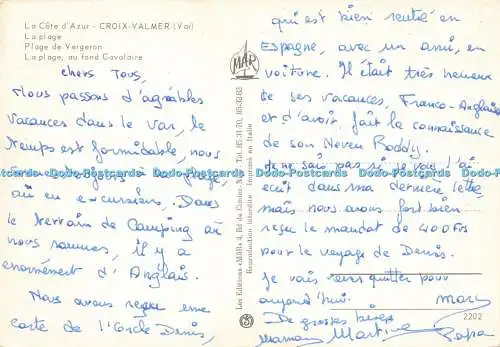 La Côte d'Azur - CROIX-VALMER (Var)
La plage
Plage de Vergeron
La plage, au fond Cavalaire
Chers Tous,
Nous passons d'agréables
vacances dans le Var, le
temps est formidable, nous
plage,
ou en excursions. Dans
le terrain de Camping où
nous sommes, il y a
énormément d'Anglais.
Nous avons reçu une
carte de l'Oncle Denis,
MAR
Les Editions «MAR» 4, Bd de Cimiez, Nice, Tél.
Reproduction interdite Imprimé en Italie
qui est bien rentré en
Espagne, avec un ami, en
voiture. Il était très heureux
de ses vacances, Franco-Anglaises
et d'avoir fait la connaissance
de son Neveu Roddy.
Je ne sais pas si je vous l'ai
écrit dans ma dernière lettre
mais nous avons fort bien
reçu le mandat de 400 Frs
pour le voyage de Denis.
Je vais vous quitter pour
aujourd'hui.
De grosses bises
Maman Martine Papa
2202
Dodo-Postcards Dodo-Postcards Dodo-Postcards Dodo-Postcards